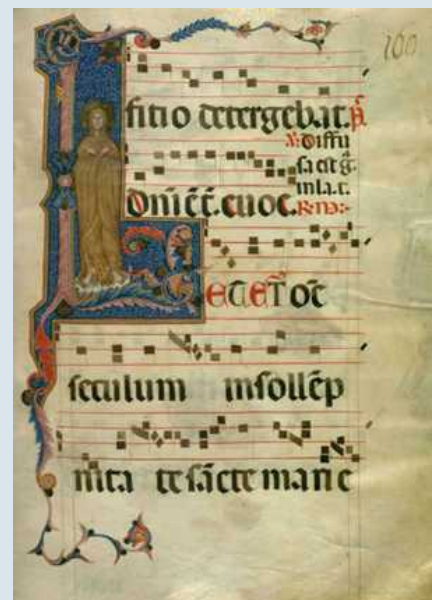 160
sitio detergebat.
diffu
sa est g̃.
in la. t.
dm̄ c̄c̄. euoc.
Letet̃ oc̄
seculum insollēp
nita te sc̄e marie